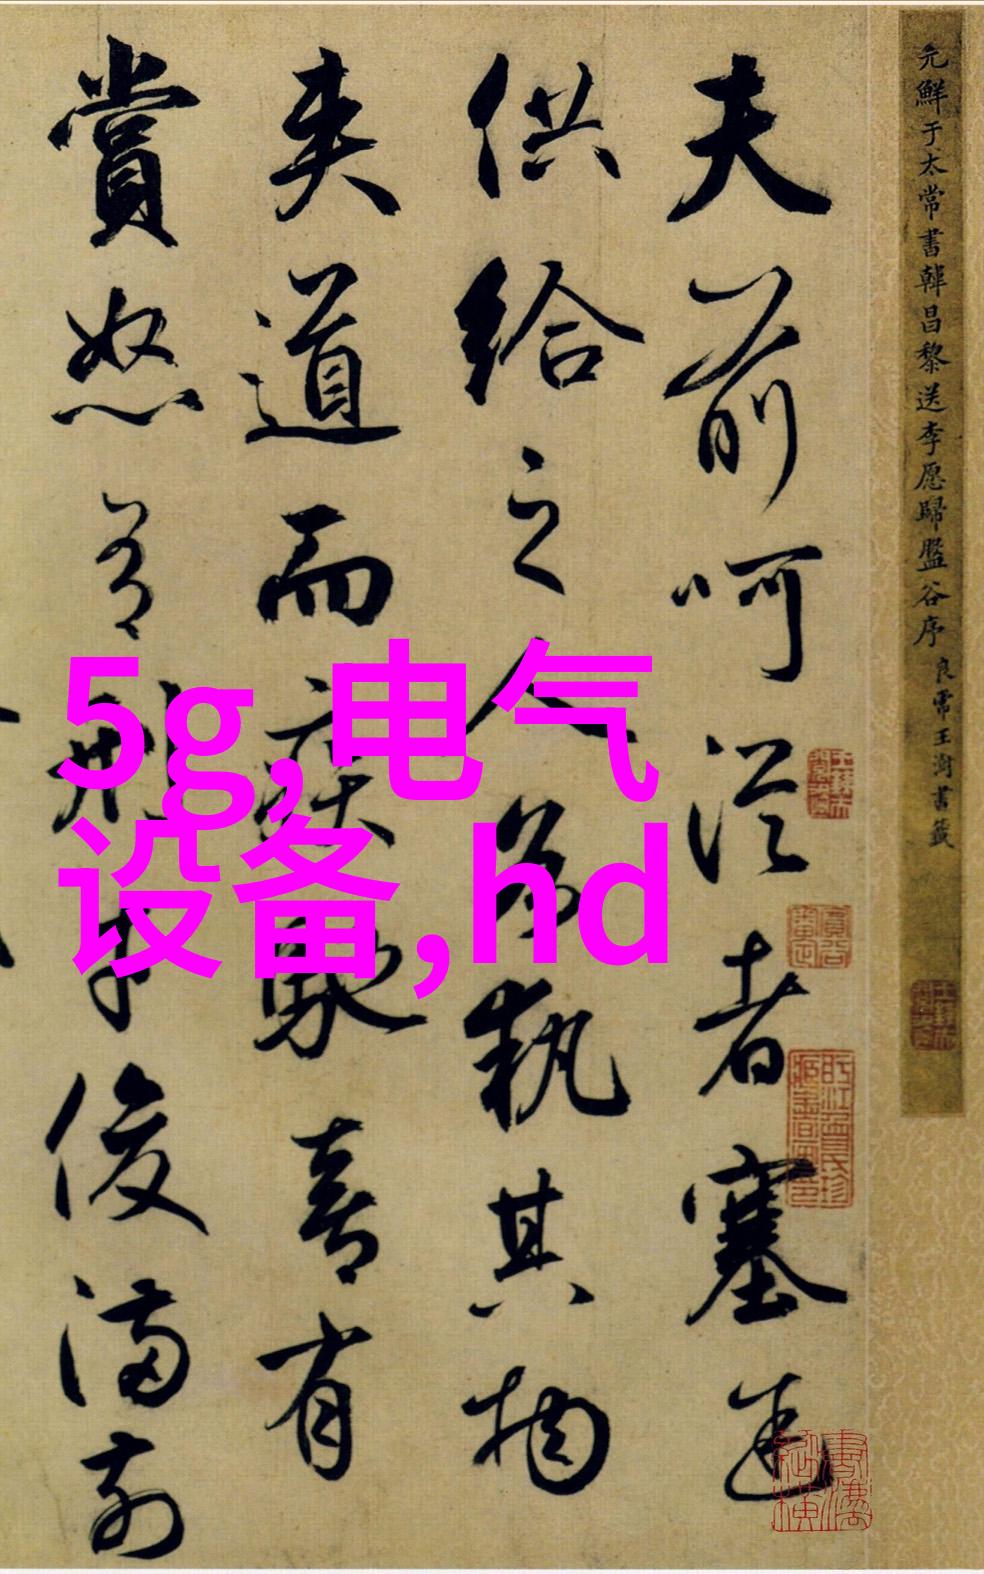 元鮮于太常書韓昌黎送李愿歸盤谷序
良常王澍書籤
夫前呵從者塞途
供給之人各執其物
夾道而疾馳喜有
賞怒有刑才俊滿前
5g,电气
设备,hd